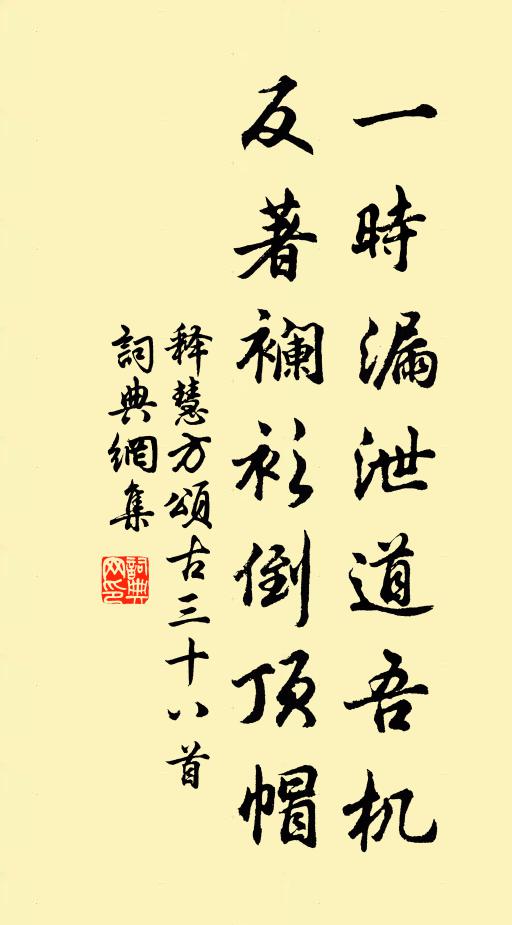 一時漏泄道吾机
反著襴衫倒頂帽
释慧方頌古三十八首
詞典網集
詞典网印